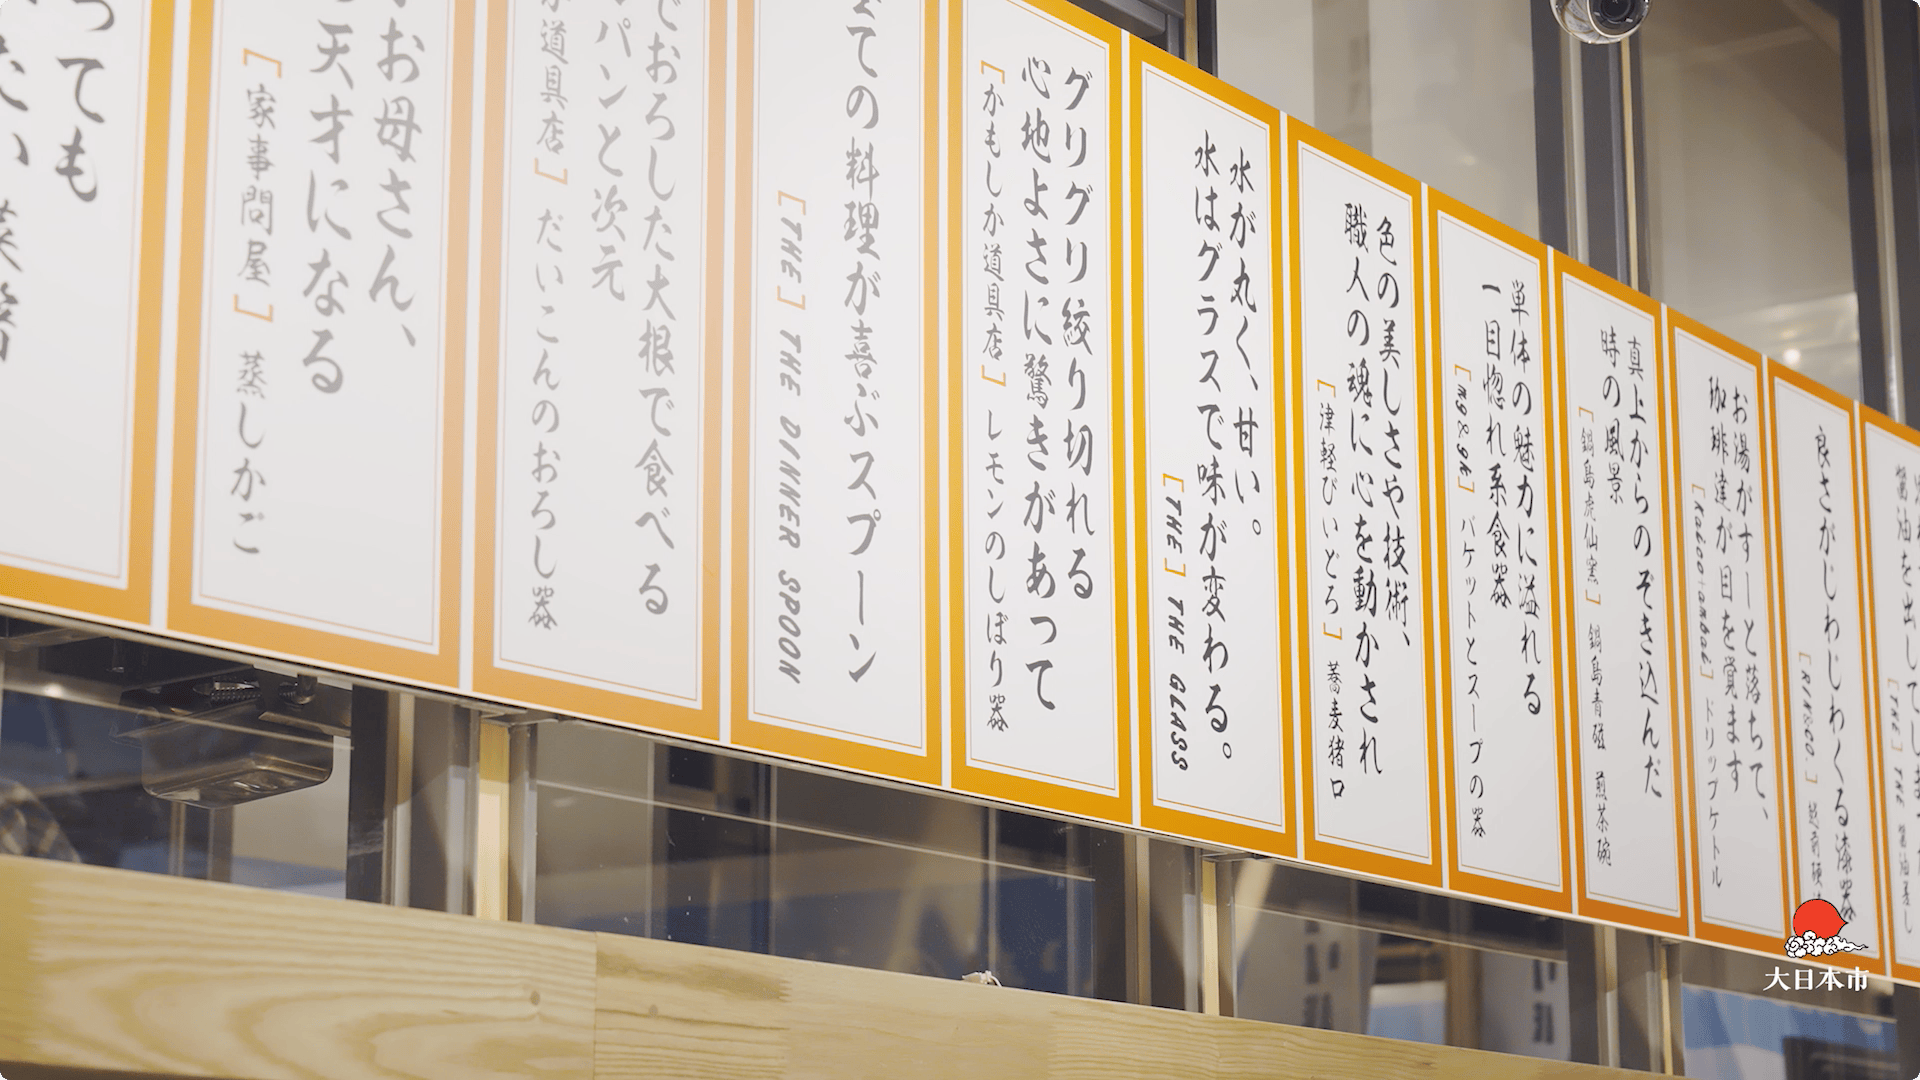 醤油を出してしま
[THE] THE 醤油差し
良さがじわじわくる漆器
[RIN&CO.] 越前硬
お湯がすーと落ちて、
珈琲達が目を覚ます
ドリップケトル
真上からのぞき込んだ
時の風景
[鍋島虎仙窯] 鍋島青磁 煎茶碗
単体の魅力に溢れる
一目惚れ系食器
[mg&gk] バケットとスープの器
色の美しさや技術、
職人の魂に心を動かされ
[津軽びいどろ] 蕎麦猪口
水が丸く、甘い。
水はグラスで味が変わる。
[THE] THE GLASS
グリグリ絞り切れる
心地よさに驚きがあって
[かもしか道具店] レモンのしぼり器
ての料理が喜ぶスプーン
[THE] THE DINNER SPOON
でおろした大根で食べる
パンと次元
道具店] だいこんのおろし器
お母さん、
天才になる
[家事問屋] 蒸しかご
っても
たい
大日本市